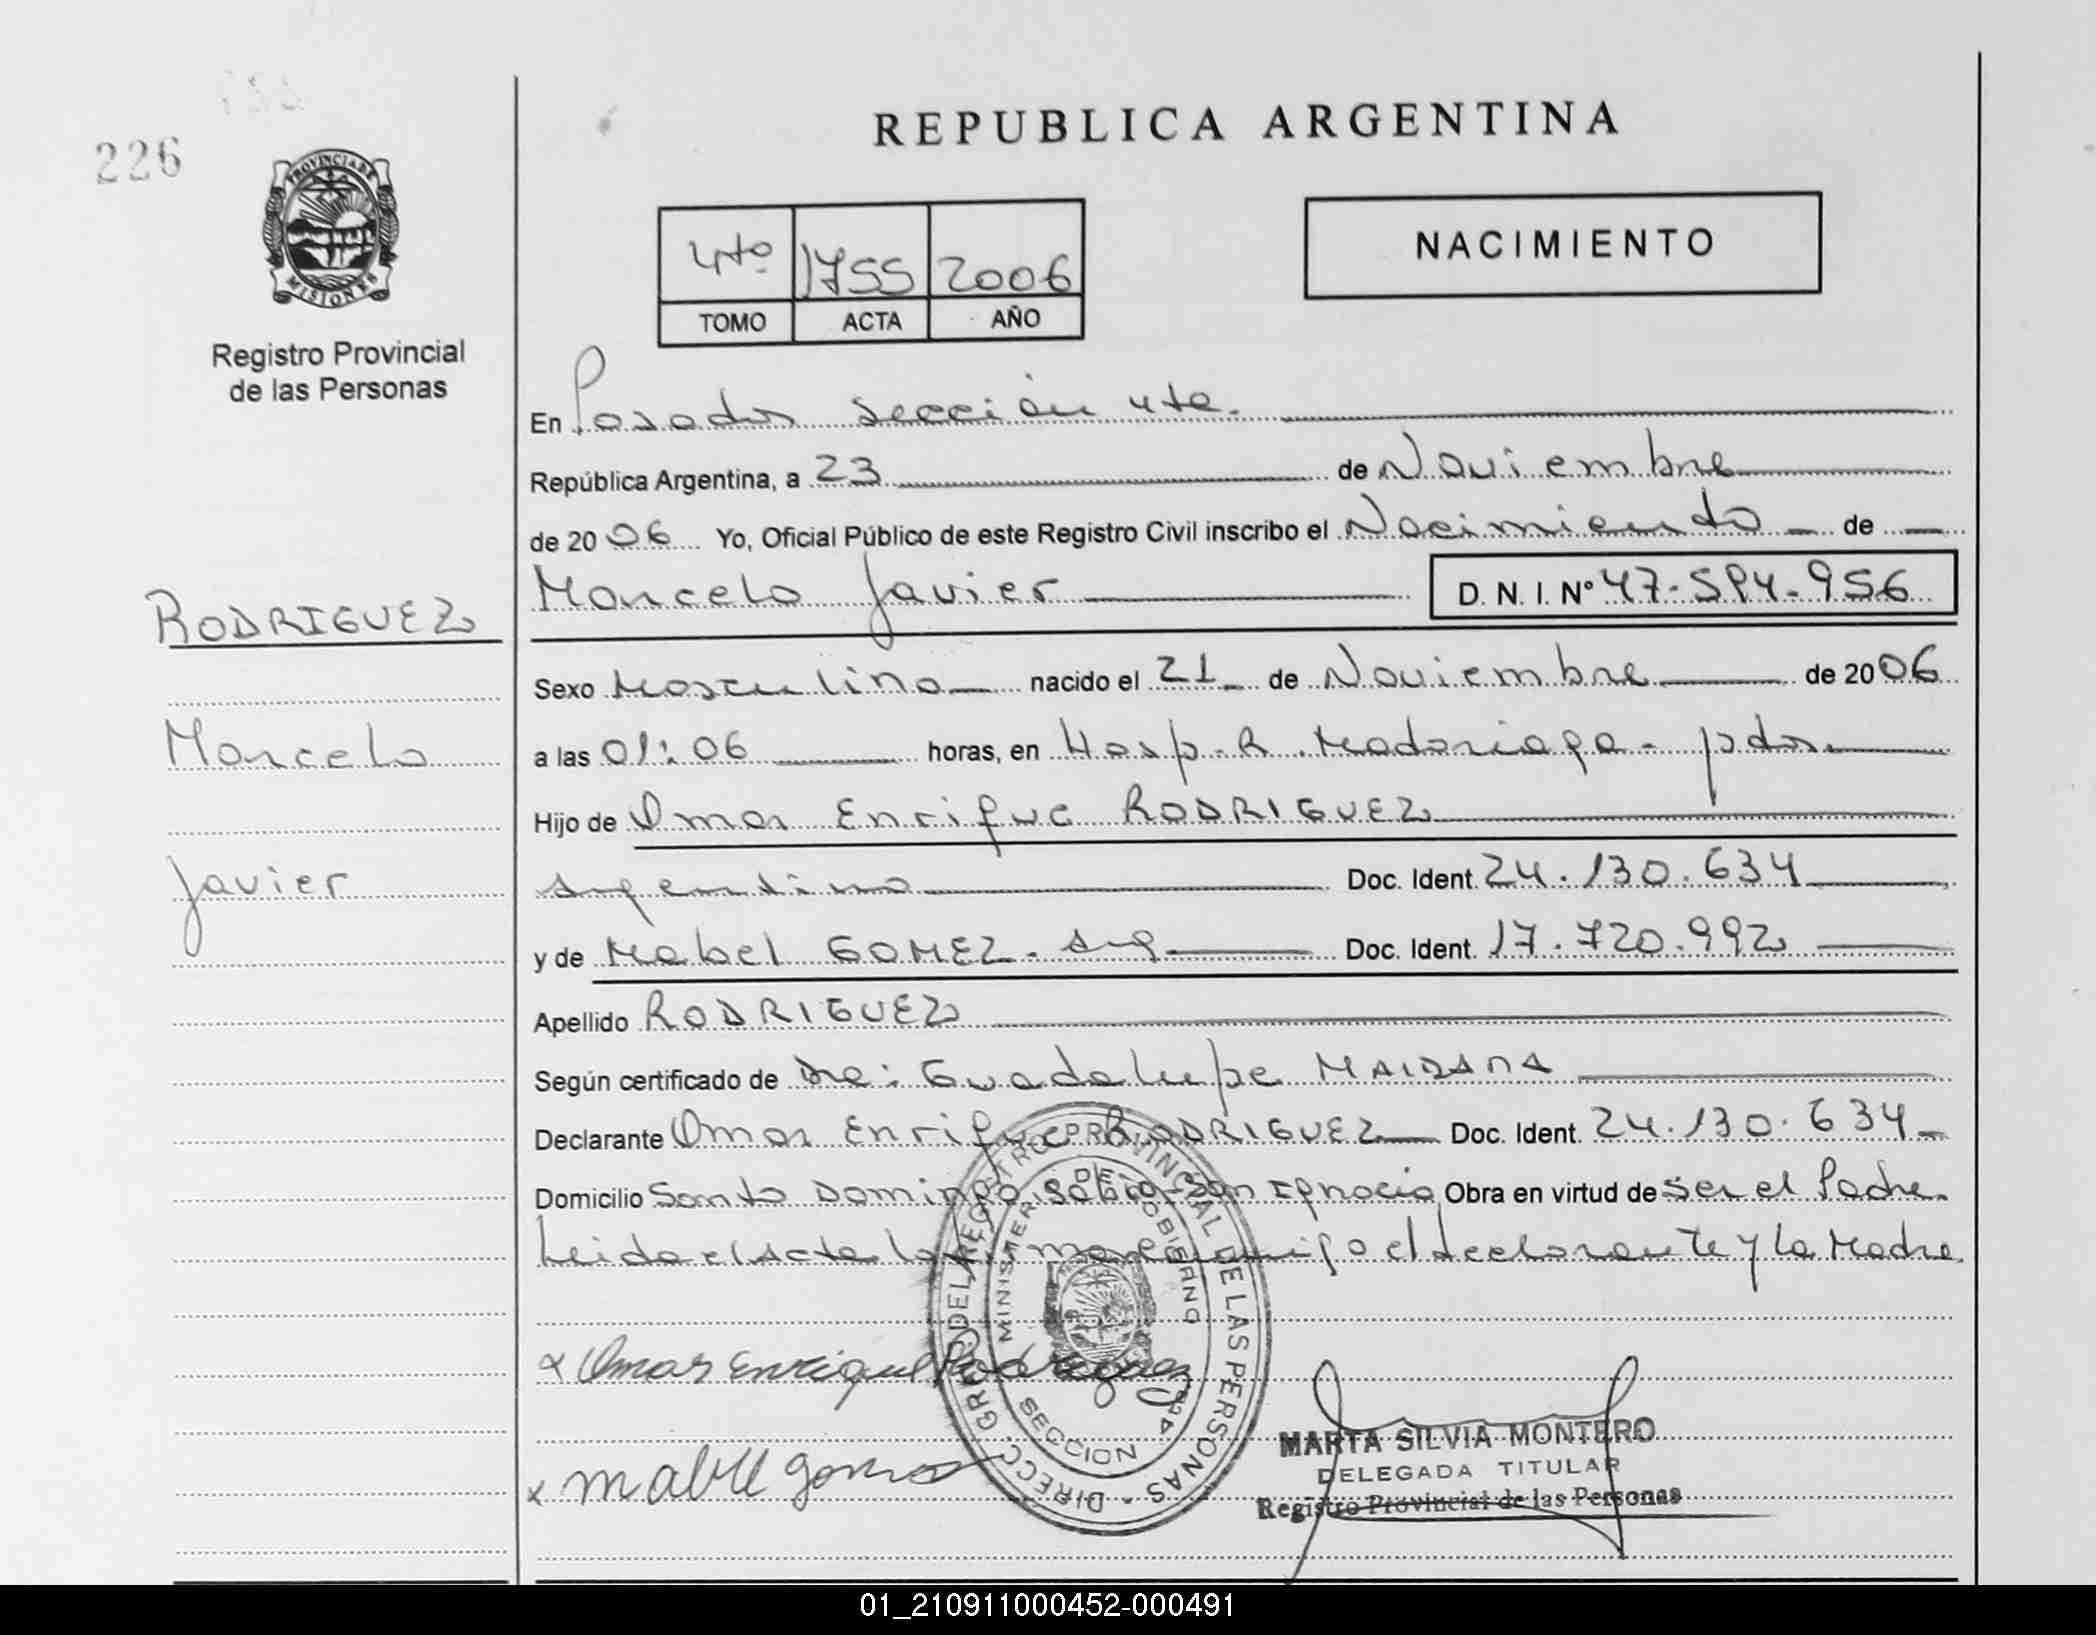 226
PROVINCIA DE
MISIONES
Registro Provincial
de las Personas
REPUBLICA ARGENTINA
4to 1755 2006
TOMO ACTA AÑO
NACIMIENTO
En Posadas Sección 4ta.
República Argentina, a 23 de Noviembre
de 2006 Yo, Oficial Público de este Registro Civil inscribo el Nacimiento de
Marcelo Javier D. N. I. Nº 47.594.956
RODRIGUEZ
Marcelo
Javier
Sexo Masculino nacido el 21 de Noviembre de 2006
a las 01:06 horas, en Hosp. R. Madariaga - pdas.
Hijo de Omar Enrique RODRIGUEZ
argentino Doc. Ident. 24.130.634
y de Mabel GOMEZ. arg Doc. Ident. 17.720.992
Apellido RODRIGUEZ
Según certificado de Dra: Guadalupe MAIDANA
Declarante Omar Enrique RODRIGUEZ Doc. Ident. 24.130.634
Domicilio Santo Domingo Sabio - San Ignacio Obra en virtud de ser el Padre.
Leida el Acta la firman conmigo el declarante y la Madre
DIRECC. GRAL. DEL REGISTRO PROVINCIAL DE LAS PERSONAS
MINISTERIO DE GOBIERNO
SECCION 4ta
x Omar Enrique Rodriguez
x Mabel gomez
MARTA SILVIA MONTERO
DELEGADA TITULAR
Registro Provincial de las Personas
01_210911000452-000491